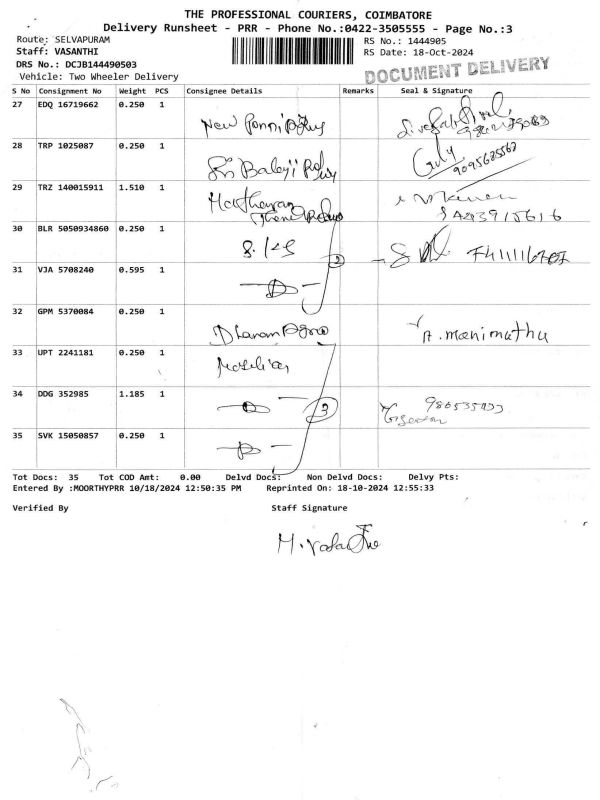 THE PROFESSIONAL COURIERS, COIMBATORE
Delivery Runsheet - PRR - Phone No.:0422-3505555 - Page No.:3
Route: SELVAPURAM RS No.: 1444905
Staff: VASANTHI RS Date: 18-Oct-2024
DRS No.: DCJB144490503
DOCUMENT DELIVERY
Vehicle: Two Wheeler Delivery
S No Consignment No Weight PCS Consignee Details Remarks Seal & Signature
27 EDQ 16719662 0.250 1
New
28 TRP 1025087 0.250 1
Sri Balaji 9095625562
29 TRZ 140015911 1.510 1
30 BLR 5050934860 0.250 1
31 VJA 5708240 0.595 1
D
32 GPM 5370084 0.250 1
Dhanam Agro A. manimuthu
33 UPT 2241181 0.250 1
34 DDG 352985 1.185 1
D 3
35 SVK 15050857 0.250 1
D
Tot Docs: 35 Tot COD Amt: 0.00 Delvd Docs: Non Delvd Docs: Delvy Pts:
Entered By :MOORTHYPRR 10/18/2024 12:50:35 PM Reprinted On: 18-10-2024 12:55:33
Verified By Staff Signature